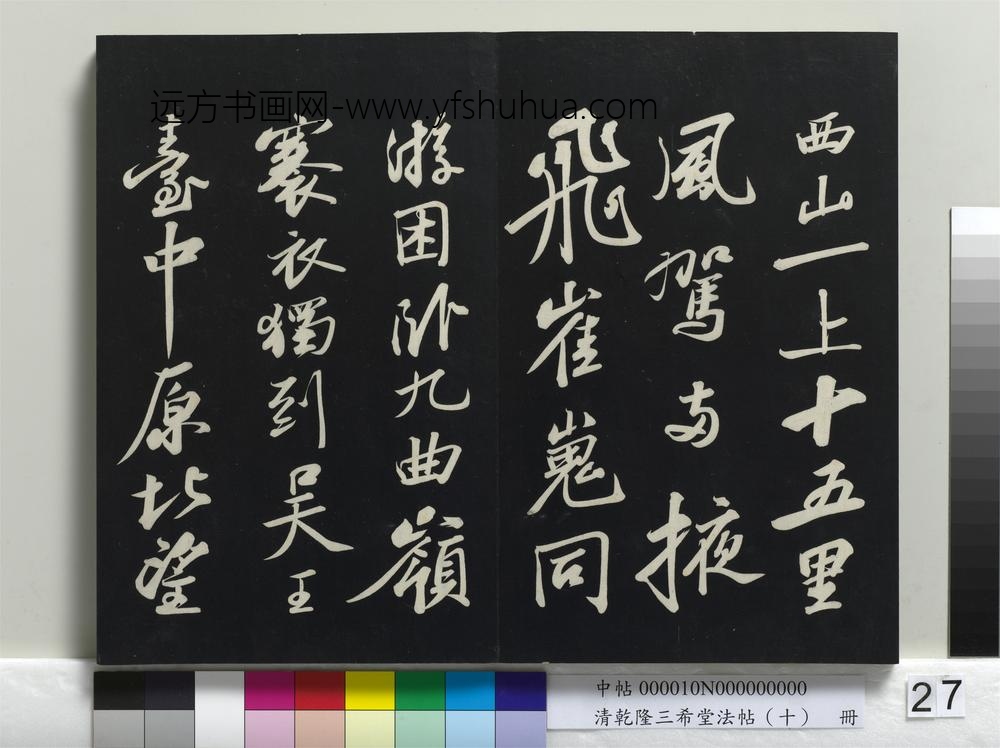 西山一上十五里
風駕兩掖
飛崔嵬同
游困卧九曲嶺
褰衣獨到吴王
臺中原北望
远方书画网-www.yfshuhua.com
中帖 000010N000000000
清乾隆三希堂法帖（十） 冊
27